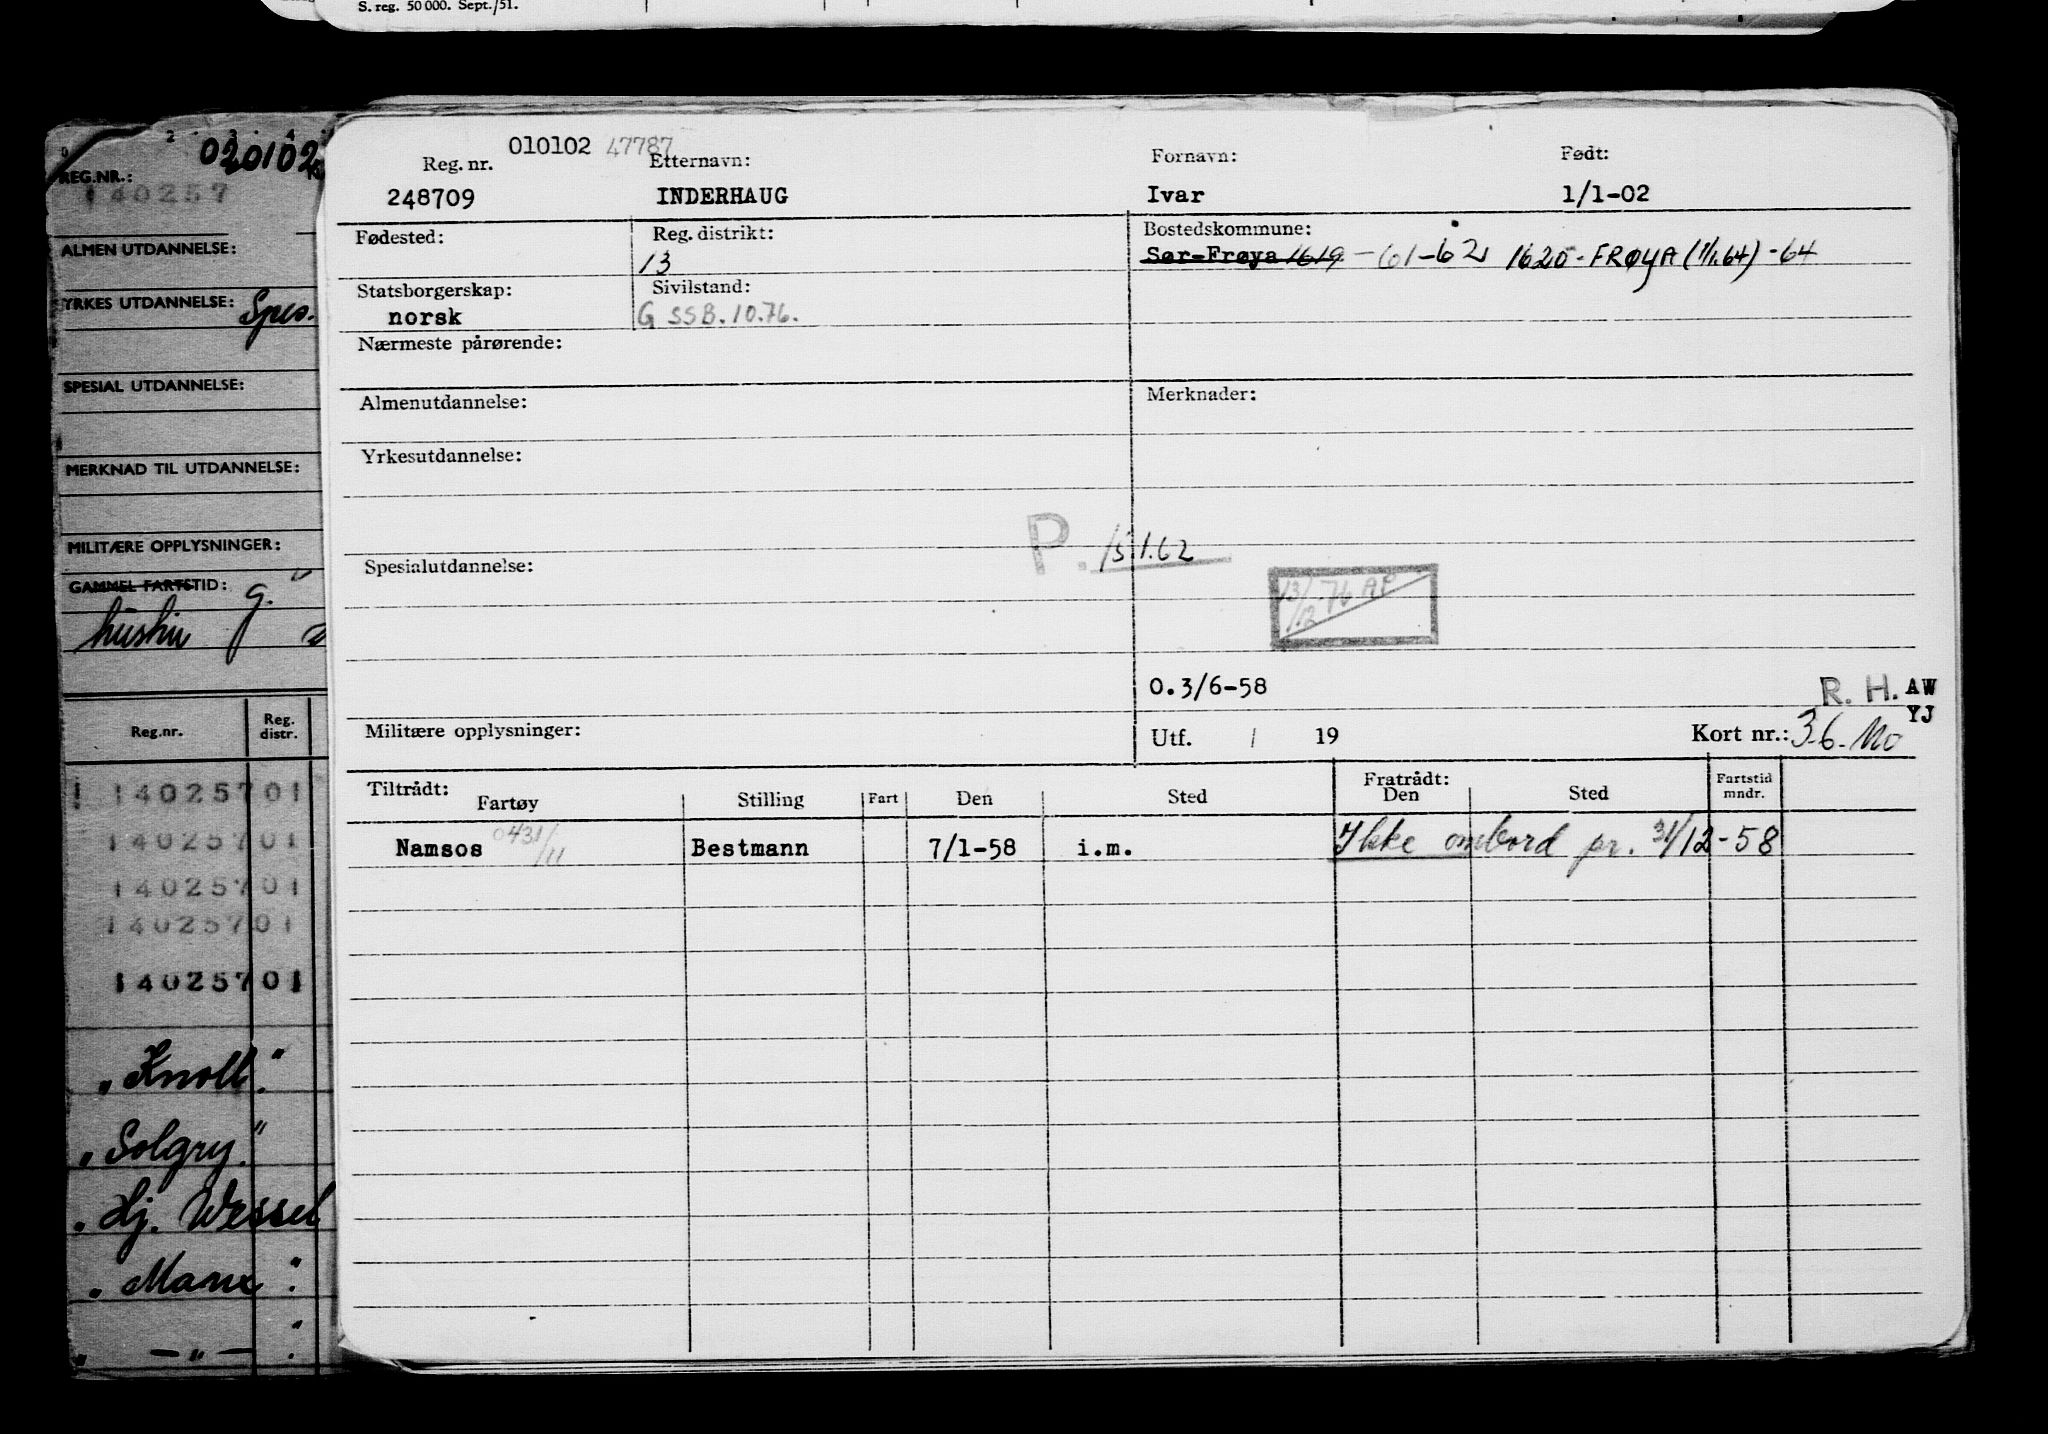 S. reg. 50 000. Sept./51.
020102
REG.NR.:
140257
ALMEN UTDANNELSE:
YRKES UTDANNELSE:
SPESIAL UTDANNELSE:
MERKNAD TIL UTDANNELSE:
MILITÆRE OPPLYSNINGER:
GAMMEL FARTSTID: g.
Reg.nr. Reg. distr.
14025701
14025701
14025701
14025701
14025701
"Knoll."
"Solgry."
" Hj. Wessel
" Manx "
" — " — "
010102 47787
Reg. nr. Etternavn: Fornavn: Født:
248709 INDERHAUG Ivar 1/1-02
Fødested: Reg. distrikt: Bostedskommune:
13 Sør-Frøya 1619 - 61-62 1620-FRØYA (1/1.64) -64
Statsborgerskap: Sivilstand:
norsk G SSB.10.76.
Nærmeste pårørende:
Almenutdannelse: Merknader:
Yrkesutdannelse:
P. 15.1.62
Spesialutdannelse:
13/12.76 AP
O.3/6-58
R. H. AW
YJ
Militære opplysninger: Utf. / 19 Kort nr.: 36.
Tiltrådt: Fratrådt:
Fartøy Stilling Fart Den Sted Den Sted Fartstid mndr.
Namsos 0431/11 Bestmann 7/1-58 i.m. Ikke ombord pr. 31/12-58